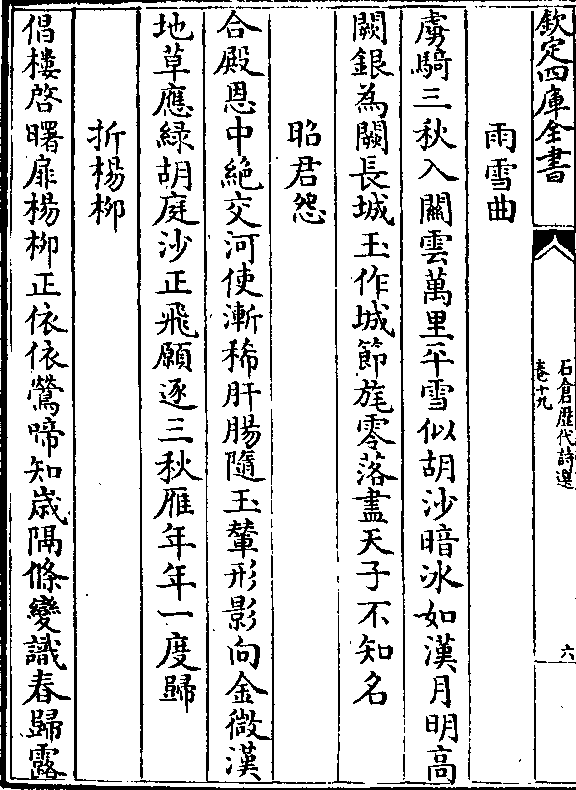 欽定四庫全書
石倉歴代詩選
卷十九
六
雨雪曲
虜騎三秋入關雲萬里平雪似胡沙暗冰如漢月明高
闕銀為闕長城玉作城節旄零落盡天子不知名
昭君怨
合殿恩中絶交河使漸稀肝腸隨玉輦形影向金微漢
地草應緑胡庭沙正飛願逐三秋雁年年一度歸
折楊柳
倡樓啓曙扉楊柳正依依鶯啼知歳隔條變識春歸露